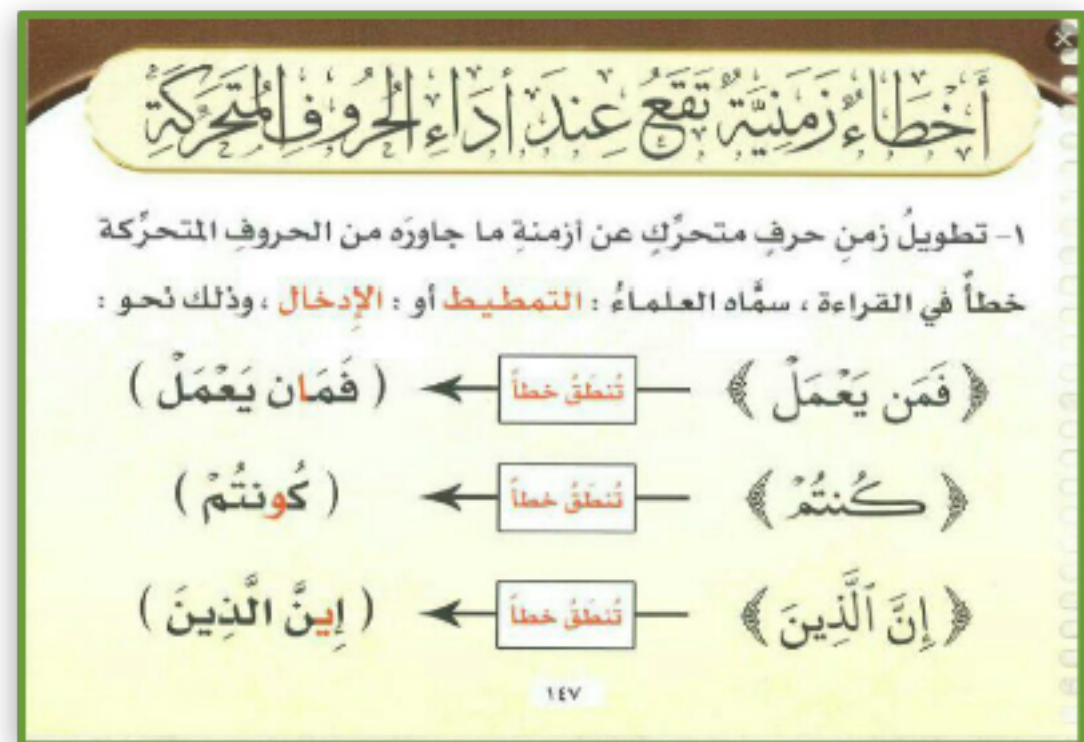 أَخْطَاءٌ زَمَنِيَّةٌ تَقَعُ عِندَ أَدَاءِ الْحُرُوفِ الْمُتَحَرِّكَةِ
١- تطويلُ زمنِ حرفٍ متحرِّكٍ عن أزمنةِ ما جاورَه من الحروفِ المتحرِّكة
خطأٌ في القراءة ، سمَّاه العلماءُ : التمطيط أو : الإدخال ، وذلك نحو :
﴿ فَمَن يَعْمَلْ ﴾ تُنطَقُ خطأً ( فَمَان يَعْمَلْ )
﴿ كُنتُمْ ﴾ تُنطَقُ خطأً ( كُونتُمْ )
﴿ إِنَّ ٱلَّذِينَ ﴾ تُنطَقُ خطأً ( إِينَّ الَّذِينَ )
١٤٧